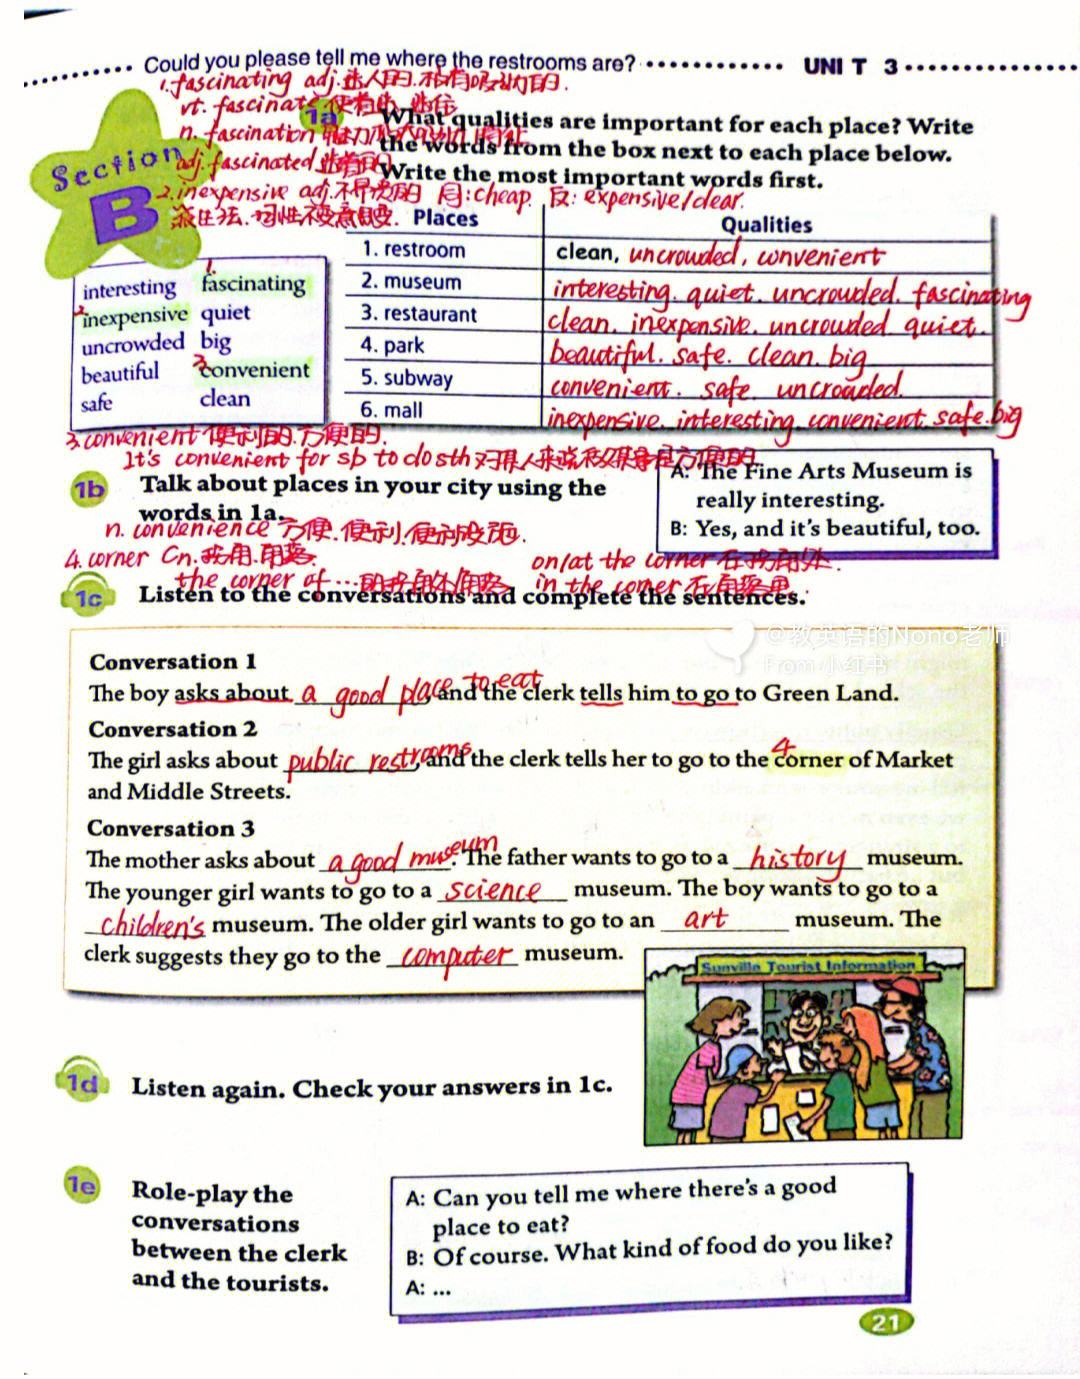 Could you please tell me where the restrooms are? UNIT 3
1. fascinating adj. 迷人的.极有吸引力的.
vt. fascinate 使着迷.迷住
n. fascination 魅力
adj. fascinated 着迷的
2. inexpensive adj. 不昂贵的 同: cheap 反: expensive/dear.
Section B
1a What qualities are important for each place? Write
the words from the box next to each place below.
Write the most important words first.
Places Qualities
1. restroom clean, uncrowded, convenient
2. museum interesting. quiet. uncrowded. fascinating
3. restaurant clean. inexpensive. uncrowded quiet.
4. park beautiful. safe. clean. big
5. subway convenient. safe. uncrowded.
6. mall inexpensive. interesting. convenient. safe. big
interesting 1. fascinating
2 inexpensive quiet
uncrowded big
beautiful 3 convenient
safe clean
3. convenient 便利的.方便的.
It's convenient for sb to do sth
1b Talk about places in your city using the
words in 1a.
A: The Fine Arts Museum is
really interesting.
B: Yes, and it's beautiful, too.
n. convenience 方便.便利.便利设施.
4. corner Cn. 拐角.角落. on/at the corner 在拐角处.
the corner of … in the corner 在角落里.
1c Listen to the conversations and complete the sentences.
@教英语的Nono老师
From 小红书
Conversation 1
The boy asks about a good place to eat and the clerk tells him to go to Green Land.
Conversation 2
The girl asks about public restrooms, and the clerk tells her to go to the 4 corner of Market
and Middle Streets.
Conversation 3
The mother asks about a good museum. The father wants to go to a history museum.
The younger girl wants to go to a science museum. The boy wants to go to a
children's museum. The older girl wants to go to an art museum. The
clerk suggests they go to the computer museum.
Sunville Tourist Information
1d Listen again. Check your answers in 1c.
1e Role-play the
conversations
between the clerk
and the tourists.
A: Can you tell me where there's a good
place to eat?
B: Of course. What kind of food do you like?
A: ...
21